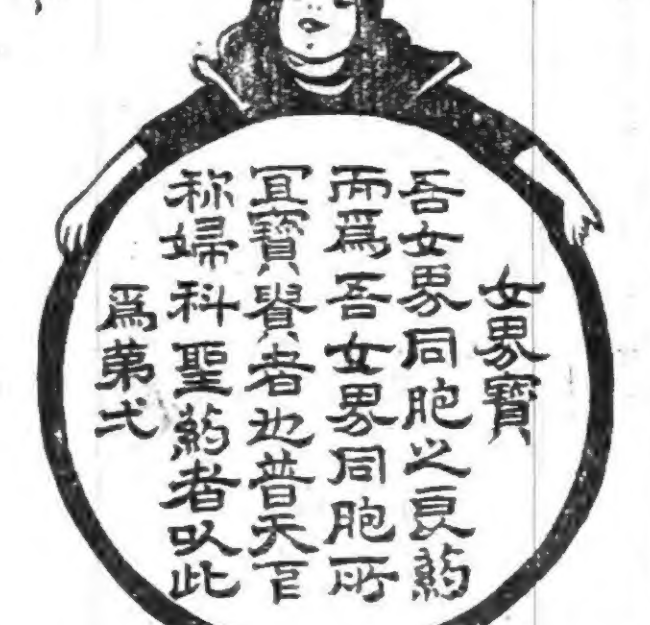 女界寶
吾女界同胞之良葯
而爲吾女界同胞所
宜寶貴者也普天下
称婦科聖葯者以此
爲第弌